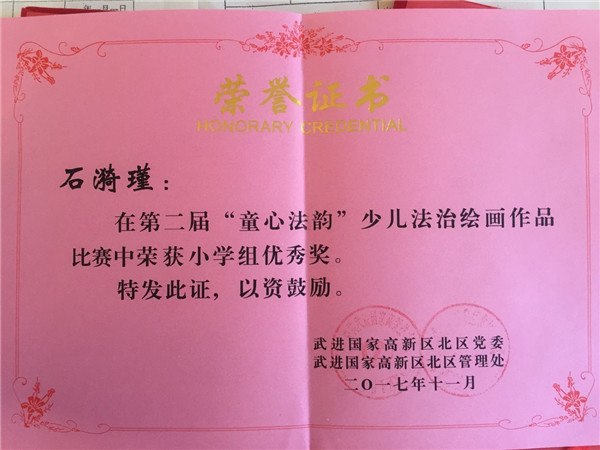 荣誉证书
HONORARY CREDENTIAL
石漪瑾：
在第二届“童心法韵”少儿法治绘画作品
比赛中荣获小学组优秀奖。
特发此证，以资鼓励。
武进国家高新区北区党委
武进国家高新区北区管理处
二〇一七年十一月